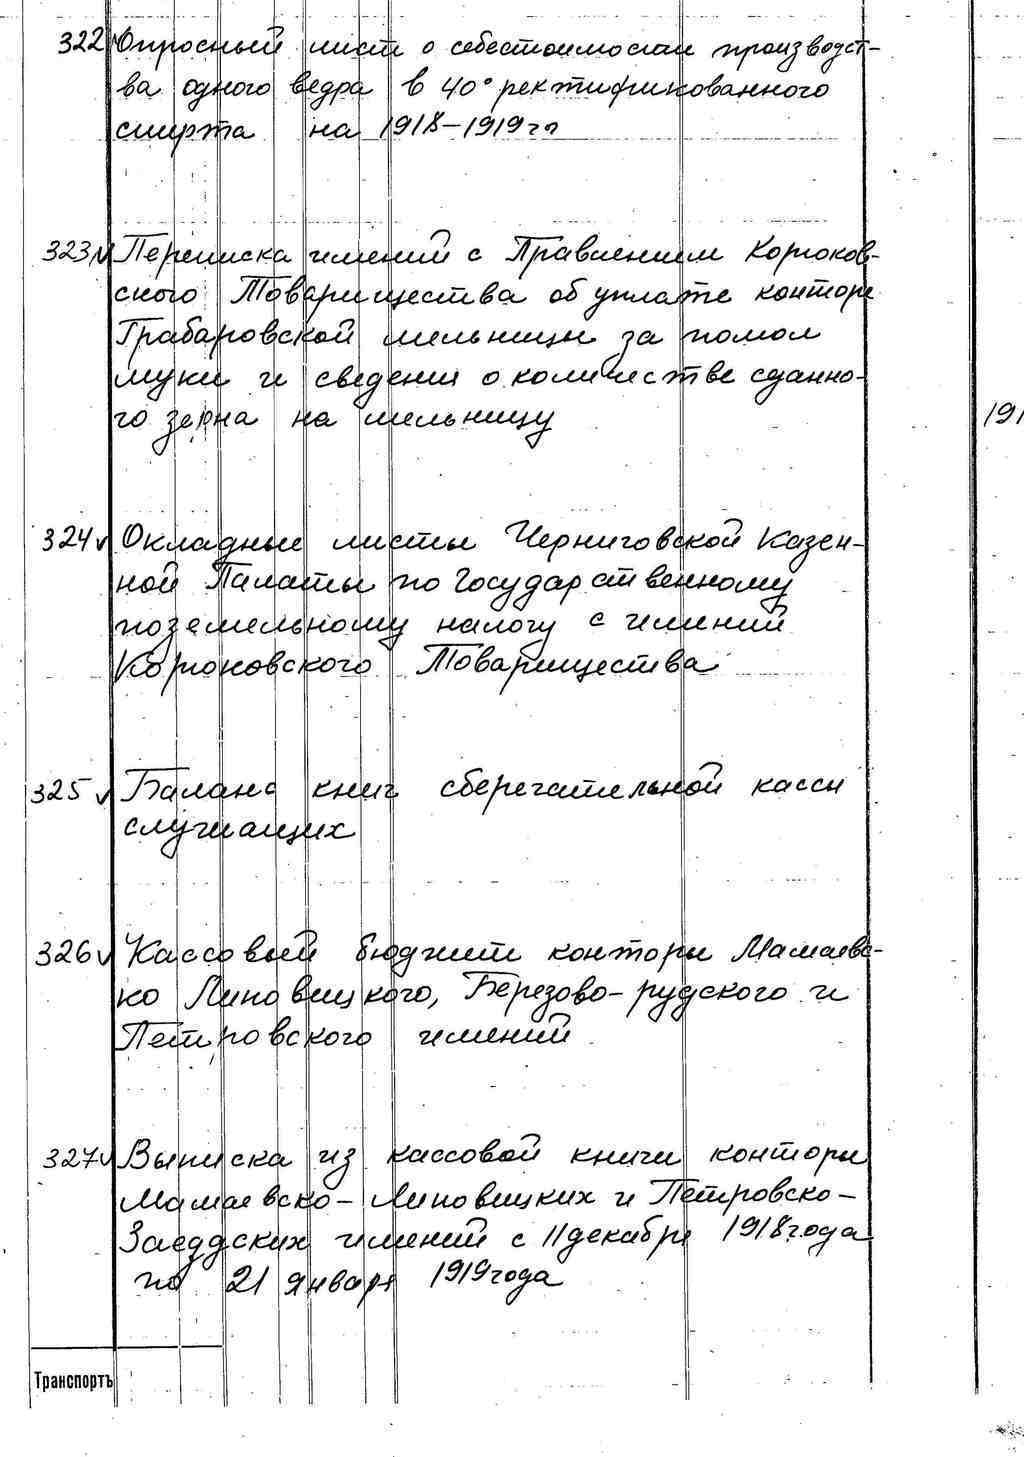 322 Опросный лист о себестоимости производст-
ва одного ведра в 40° ректификованного
спирта на 1918-1919 гг
323 Переписка имений с Правлением Корюков-
ского Товарищества об уплате конторе
Грабаровской мельницы за помол
муки и сведения о количестве сданно-
го зерна на мельницу
191
324 Окладные листы Черниговской Казен-
ной Палаты по Государственному
поземельному налогу с имений
Корюковского Товарищества
325 Баланс книг сберегательной кассы
служащих
326 Кассовый бюджет конторы Мамаевс-
ко Линовицкого, Березово-рудского и
Петровского имений
327 Выписка из кассовой книги конторы
Мамаевско-Линовицких и Петровско-
Заеддских имений с 11 декабря 1918 года
по 21 января 1919 года
Транспортъ